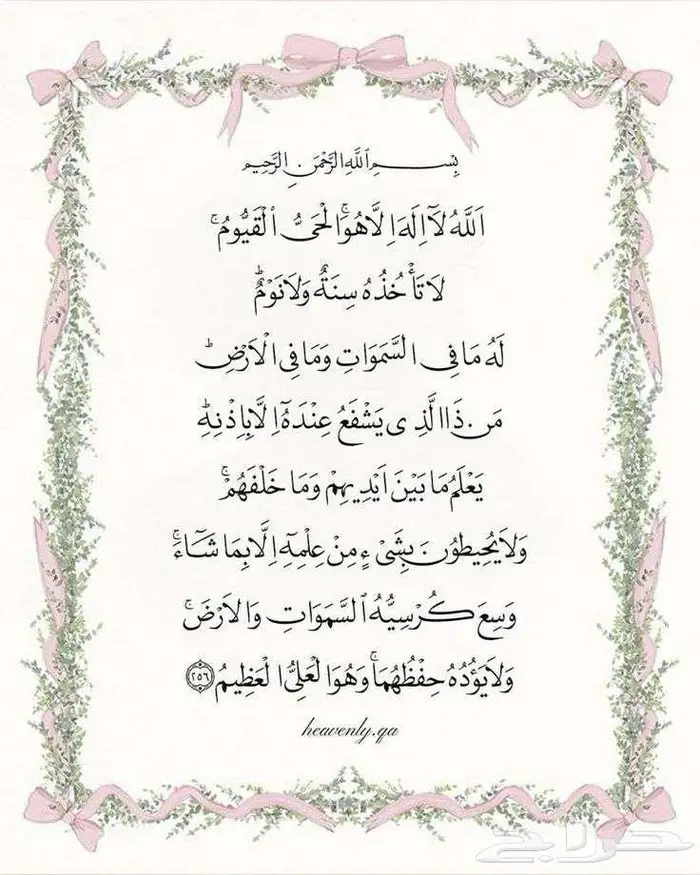 بِسْمِ ٱللَّهِ الرَّحْمَنِ الرَّحِيمِ
اَللَّهُ لَآ اِلَهَ اِلَّا هُوَۚ الْحَىُّ ٱلْقَيُّومُۚ
لَا تَأْخُذُهُ سِنَةٌ وَلَا نَوْمٌؕ
لَهُ مَا فِى السَّمَوَاتِ وَمَا فِى الْاَرْضِؕ
مَن ذَا الَّذِى يَشْفَعُ عِنْدَهُٓ اِلَّا بِاِذْنِهِؕ
يَعْلَمُ مَا بَيْنَ اَيْدِيهِمْ وَمَا خَلْفَهُمْۚ
وَلَا يُحِيطُونَ بِشَىْءٍ مِنْ عِلْمِهِٓ اِلَّا بِمَا شَآءَۚ
وَسِعَ كُرْسِيُّهُ ٱلسَّمَوَاتِ وَالْاَرْضَۚ
وَلَا يَؤُدُهُ حِفْظُهُمَاۚ وَهُوَ الْعَلِىُّ الْعَظِيمُ ٢٥٦
heavenly.qa
حراج